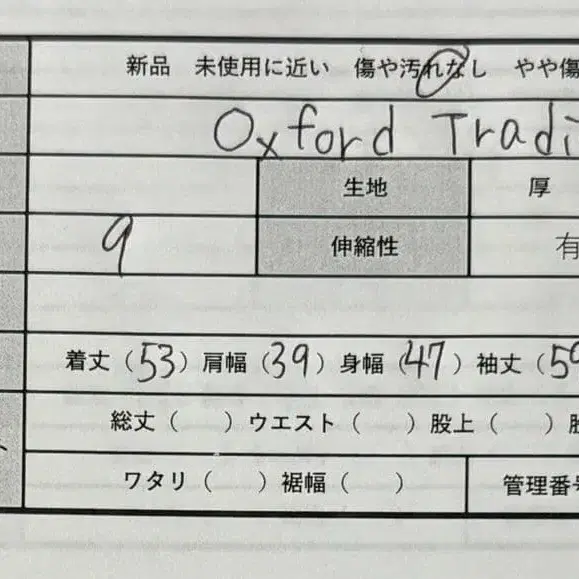 新品 未使用に近い 傷や汚れなし やや傷
Oxford Tradi
生地 厚
9 伸縮性 有
着丈（53）肩幅（39）身幅（47）袖丈（59
総丈（ ）ウエスト（ ）股上（ ）股
ワタリ（ ）裾幅（ ） 管理番号